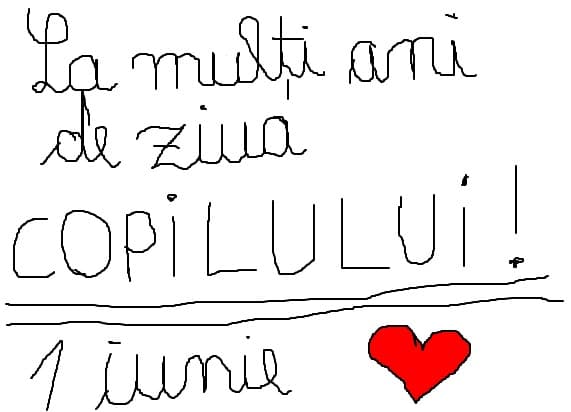 La mulți ani
de ziua
COPiLULUi!
1 iunie